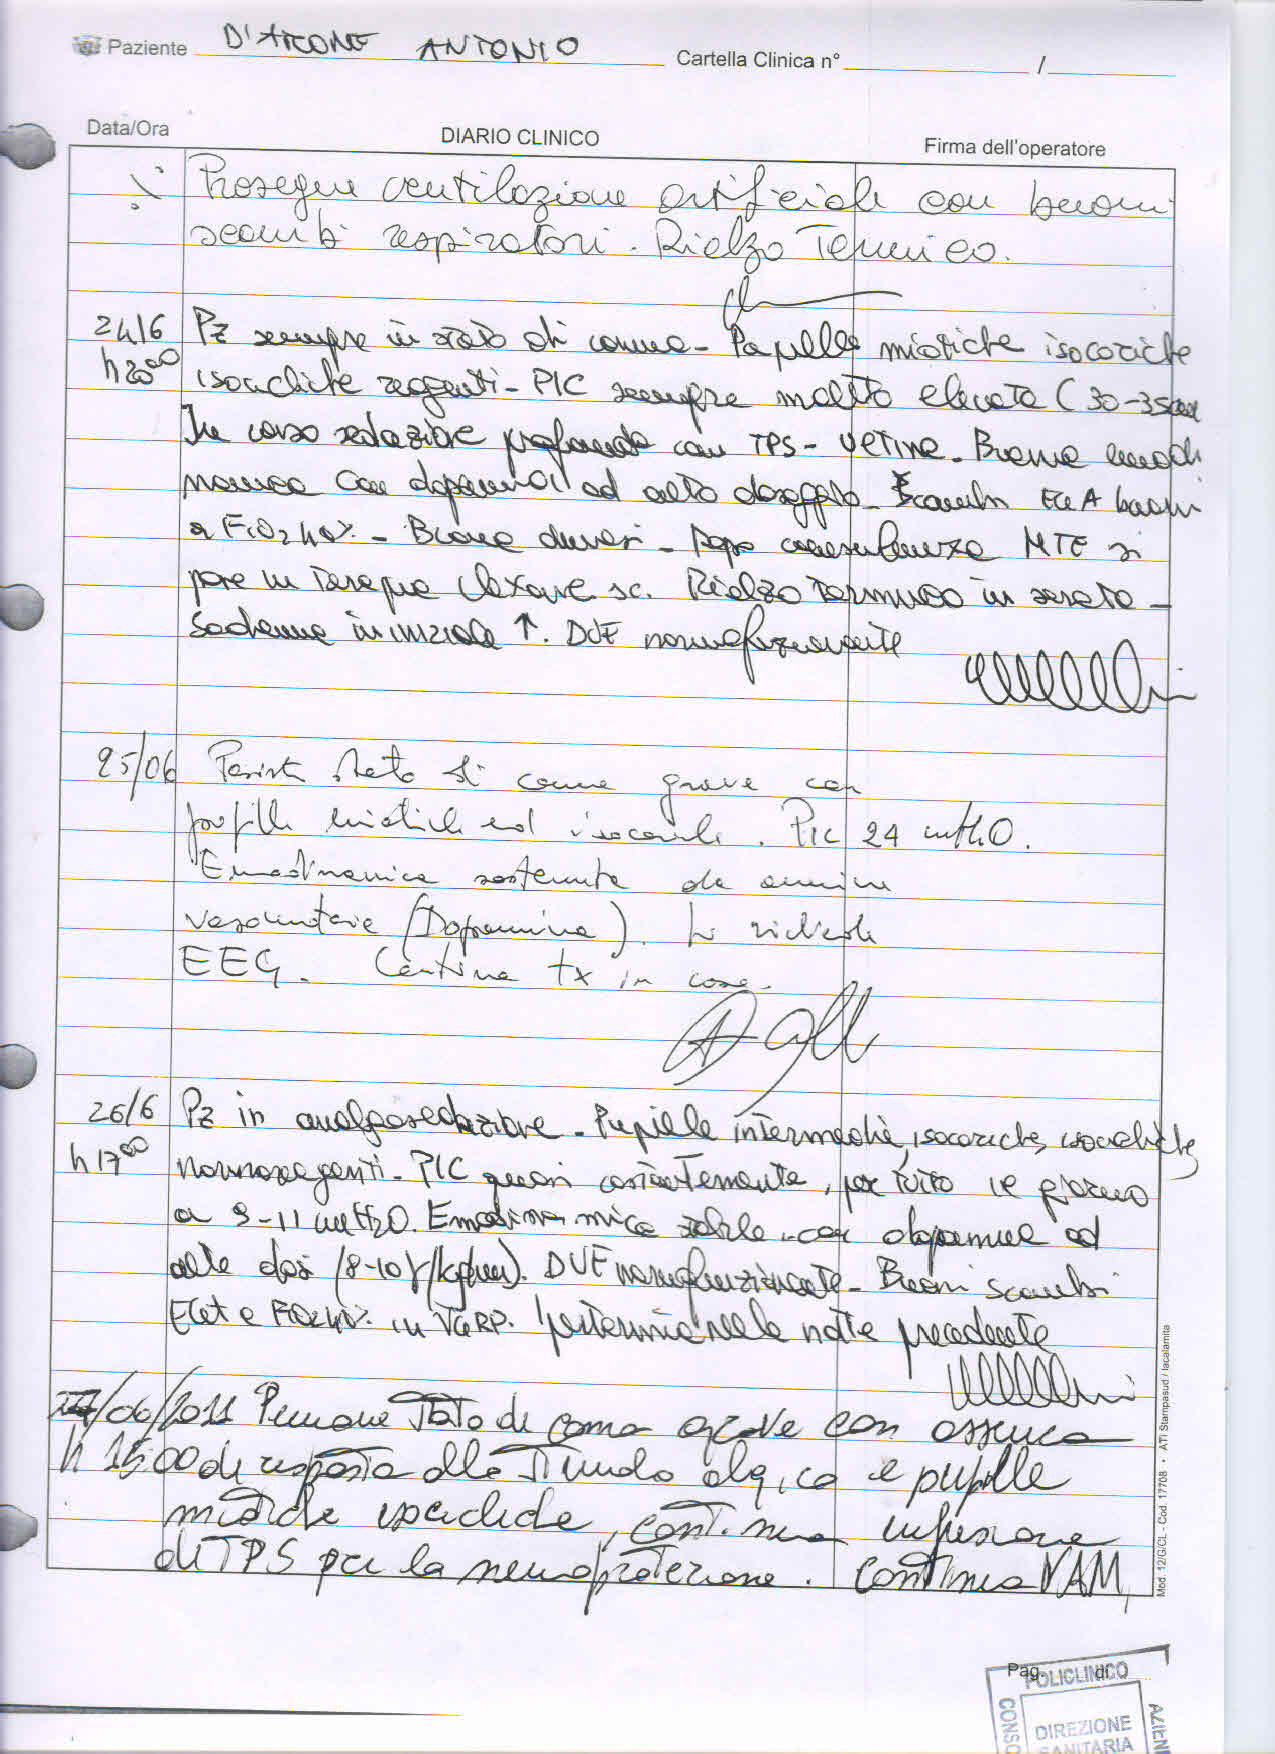 Paziente D'ARCONE ANTONIO Cartella Clinica n° /
Data/Ora DIARIO CLINICO Firma dell'operatore
Prosegue ventilazione artificiale con buoni
scambi respiratori. Rialzo Termico.
24/6 Pz sempre in stato di coma - Pupille miotiche isocoriche
h 20⁰⁰ isocicliche reagenti - PIC sempre molto elevata (30-35
In corso sedazione profonda con TPS - Buona emodi
namica con dopamina ad alto dosaggio - Scambi EGA buoni
a FiO2 40% - Buona diuresi - Dopo consulenza MTE si
pone in Terapia Clexane sc. Rialzo Termico in serata -
Sodiemia in iniziale ↑. DVE normofunzionante
25/06 Persiste stato di coma grave con
pupille miotiche ed isocoriche. PIC 24 mmH2O.
Emodinamica sostenuta da amine
vasoattive (Dopamina). Si richiede
EEG. Continua tx in corso.
26/6 Pz in analgosedazione - Pupille intermedie, isocoriche, isocicliche
h 17⁰⁰ normoreagenti - PIC quasi costantemente, per tutto il giorno
a 9-11 mmH2O. Emodinamica stabile con dopamina ad
alte dosi (8-10 γ/kg/min). DVE normofunzionante - Buoni scambi
EGA a FiO2 40% in Ipertermia nella notte precedente
27/06/2011 Permane stato di coma grave con assenza
h 15:00 di risposta allo stimolo algico e pupille
miotiche isocicliche, continua infusione
di TPS per la neuroprotezione. Continua VAM,
Mod. 12/G/CL - Cod. 17708 • ATI Stampasud / Iacalamita
Pag. di
POLICLINICO
CONSO
DIREZIONE
SANITARIA
AZIEN